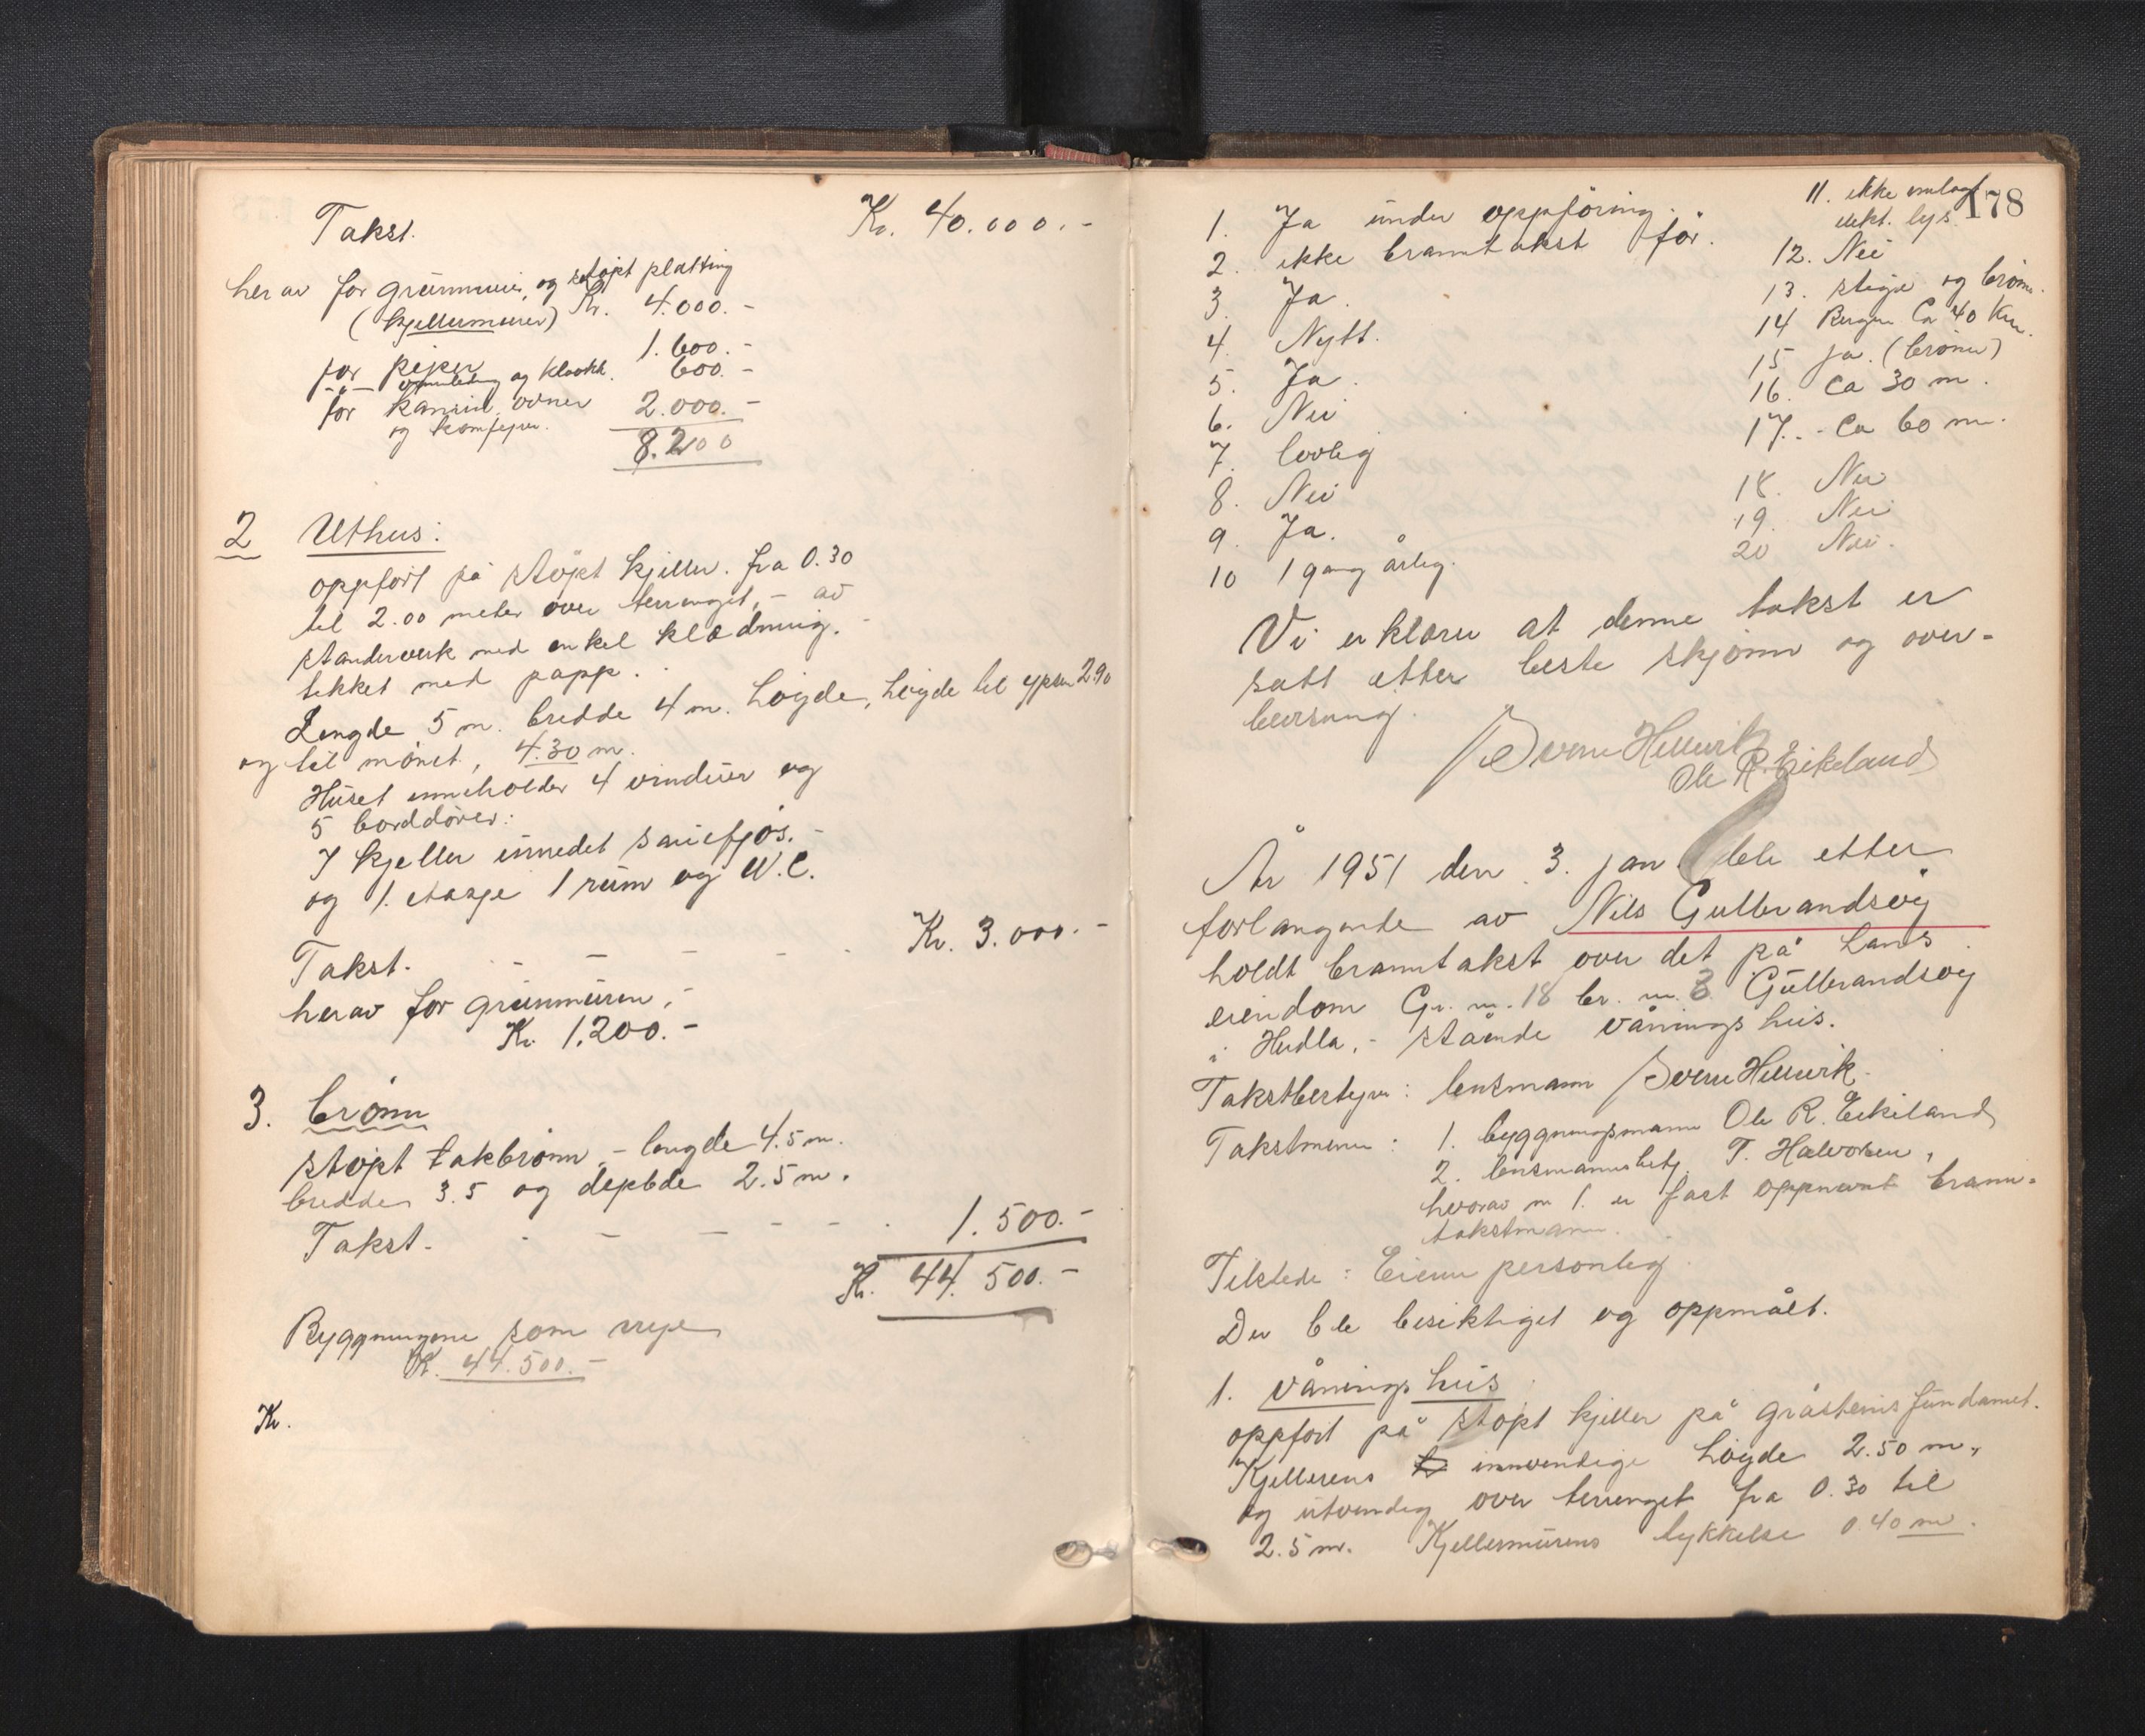 Takst. Kr. 40.000.-
herav for grunnmur, og støpt platting
(kjellermurer) Kr. 4.000.-
for peiper 1.600.-
-"- og kloakk. 600.-
for kamin, ovner 2.000.-
og komfyrer.
8.200
2 Uthus:
oppført på støpt kjeller. fra 0.30
til 2.00 meter over terrenget, - av
standerverk med enkel klædning.
tekket med papp.
Lengde 5 m. bredde 4 m. høyde, høyde til gesen 2.90
og til mønet, 4.30 m.
Huset inneholder 4 vinduer og
5 borddører:
I kjeller innredet sauefjøs.-
og 1. etasje 1 rum og W.C.
Takst. - - - - Kr. 3.000.-
herav for grunnmuren,-
Kr. 1.200.-
3. brønn
støpt takbrønn, - lengde 4.5 m.
bredde 3.5 og dybde 2.5 m.
Takst. - - - - 1.500.-
Kr. 44.500.-
Byggningene som nye
Kr. 44.500.-
Kr.
178
1. Ja under oppføring.
2. ikke branntakst før.
3. Ja.
4. Nytt.
5. Ja.
6. Nei
7. lovlig
8. Nei
9. Ja.
10 1 gang årlig.
11. ikke innlagt
elekt. lys.
12. Nei
13. stige og brønn.
14 Bergen Ca 40 Km.
15 Ja. (brønn)
16. Ca 30 m.
17. - Ca 60 m.
18. Nei
19. Nei
20 Nei.
Vi erklærer at denne takst er
satt etter beste skjønn og over-
bevisning.
Sverre Hillevik
Ole R. Eikeland
År 1951 den 3. jan ble etter
forlangende av Nils Gulbrandsøy
holdt branntakst over det på hans
eiendom Gr. nr. 18 br. nr. 8 Gulbrandsøy
i Hudla,- stående våningshus.
Takstbestyrer: lensmann Sverre Hillevik.
Takstmenn: 1. byggningsmann Ole R. Eikeland
2. lensmannsbetj. T. Halvorsen,
hvorav nr 1. er fast oppnevnt brann-
takstmann.
Tilstede: Eieren personlig
Der ble besiktiget og oppmålt.
1. våningshus
oppført på støpt kjeller på gråsteins fundamet.
Kjellerens innvendige høyde 2.50 m.,
og utvendig over terrenget fra 0.30 til
2.5 m. Kjellermurens tykkelse 0.40 m.